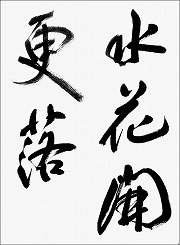 水花開
更落